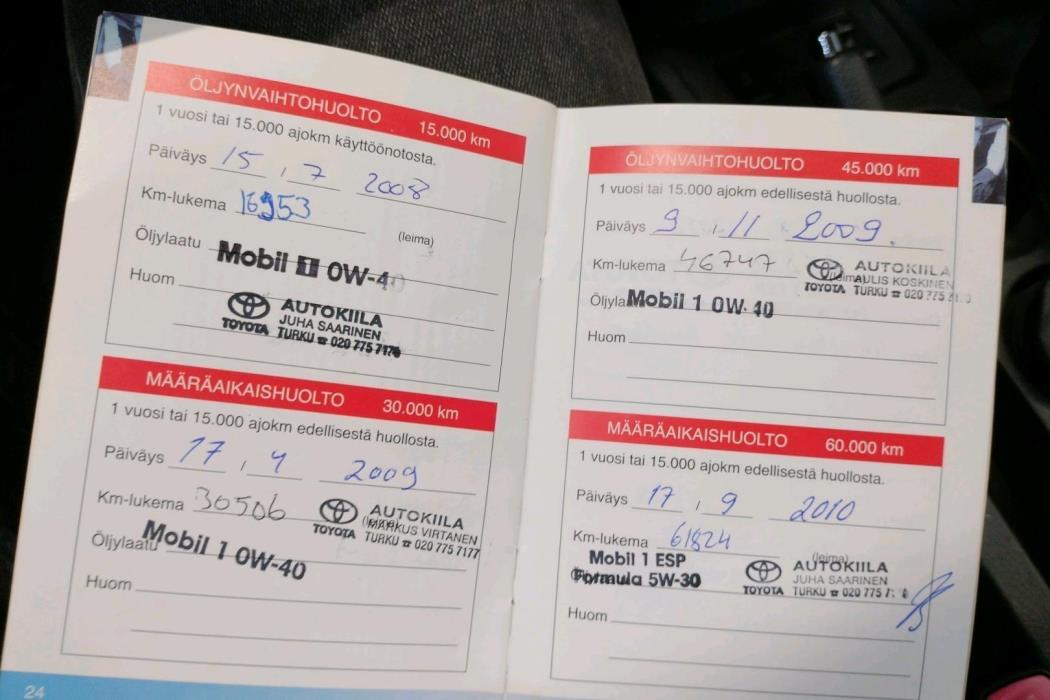 ÖLJYNVAIHTOHUOLTO 15.000 km
1 vuosi tai 15.000 ajokm käyttöönotosta.
Päiväys 15 , 7 2008
Km-lukema 16953
(leima)
Öljylaatu Mobil 1 0W-40
Huom
TOYOTA AUTOKIILA
JUHA SAARINEN
TURKU ☎ 020 775 7176
MÄÄRÄAIKAISHUOLTO 30.000 km
1 vuosi tai 15.000 ajokm edellisestä huollosta.
Päiväys 17 , 4 2009
Km-lukema 30506
(leima)
TOYOTA AUTOKIILA
MARKUS VIRTANEN
TURKU ☎ 020 775 7177
Öljylaatu Mobil 1 0W-40
Huom
24
ÖLJYNVAIHTOHUOLTO 45.000 km
1 vuosi tai 15.000 ajokm edellisestä huollosta.
Päiväys 9 , 11 2009.
Km-lukema 46747
TOYOTA AUTOKIILA
AULIS KOSKINEN
TURKU ☎ 020 775
Mobil 1 0W-40
Huom
MÄÄRÄAIKAISHUOLTO 60.000 km
1 vuosi tai 15.000 ajokm edellisestä huollosta.
Päiväys 17 , 9 2010
Km-lukema 61824
(leima)
Mobil 1 ESP
Formula 5W-30
TOYOTA AUTOKIILA
JUHA SAARINEN
TURKU ☎ 020 775
Huom